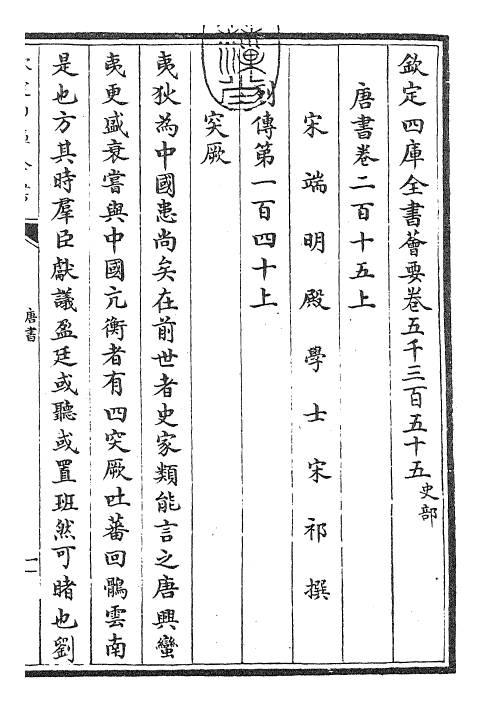 欽定四庫全書薈要卷五千三百五十五史部
唐書卷二百十五上
宋端明殿學士宋祁撰
列傳第一百四十上
突厥
夷狄為中國患尚矣在前世者史家類能言之唐興蠻
夷更盛衰嘗與中國亢衡者有四突厥吐蕃回鶻雲南
是也方其時羣臣獻議盈廷或聽或置班然可睹也劉
唐書
一